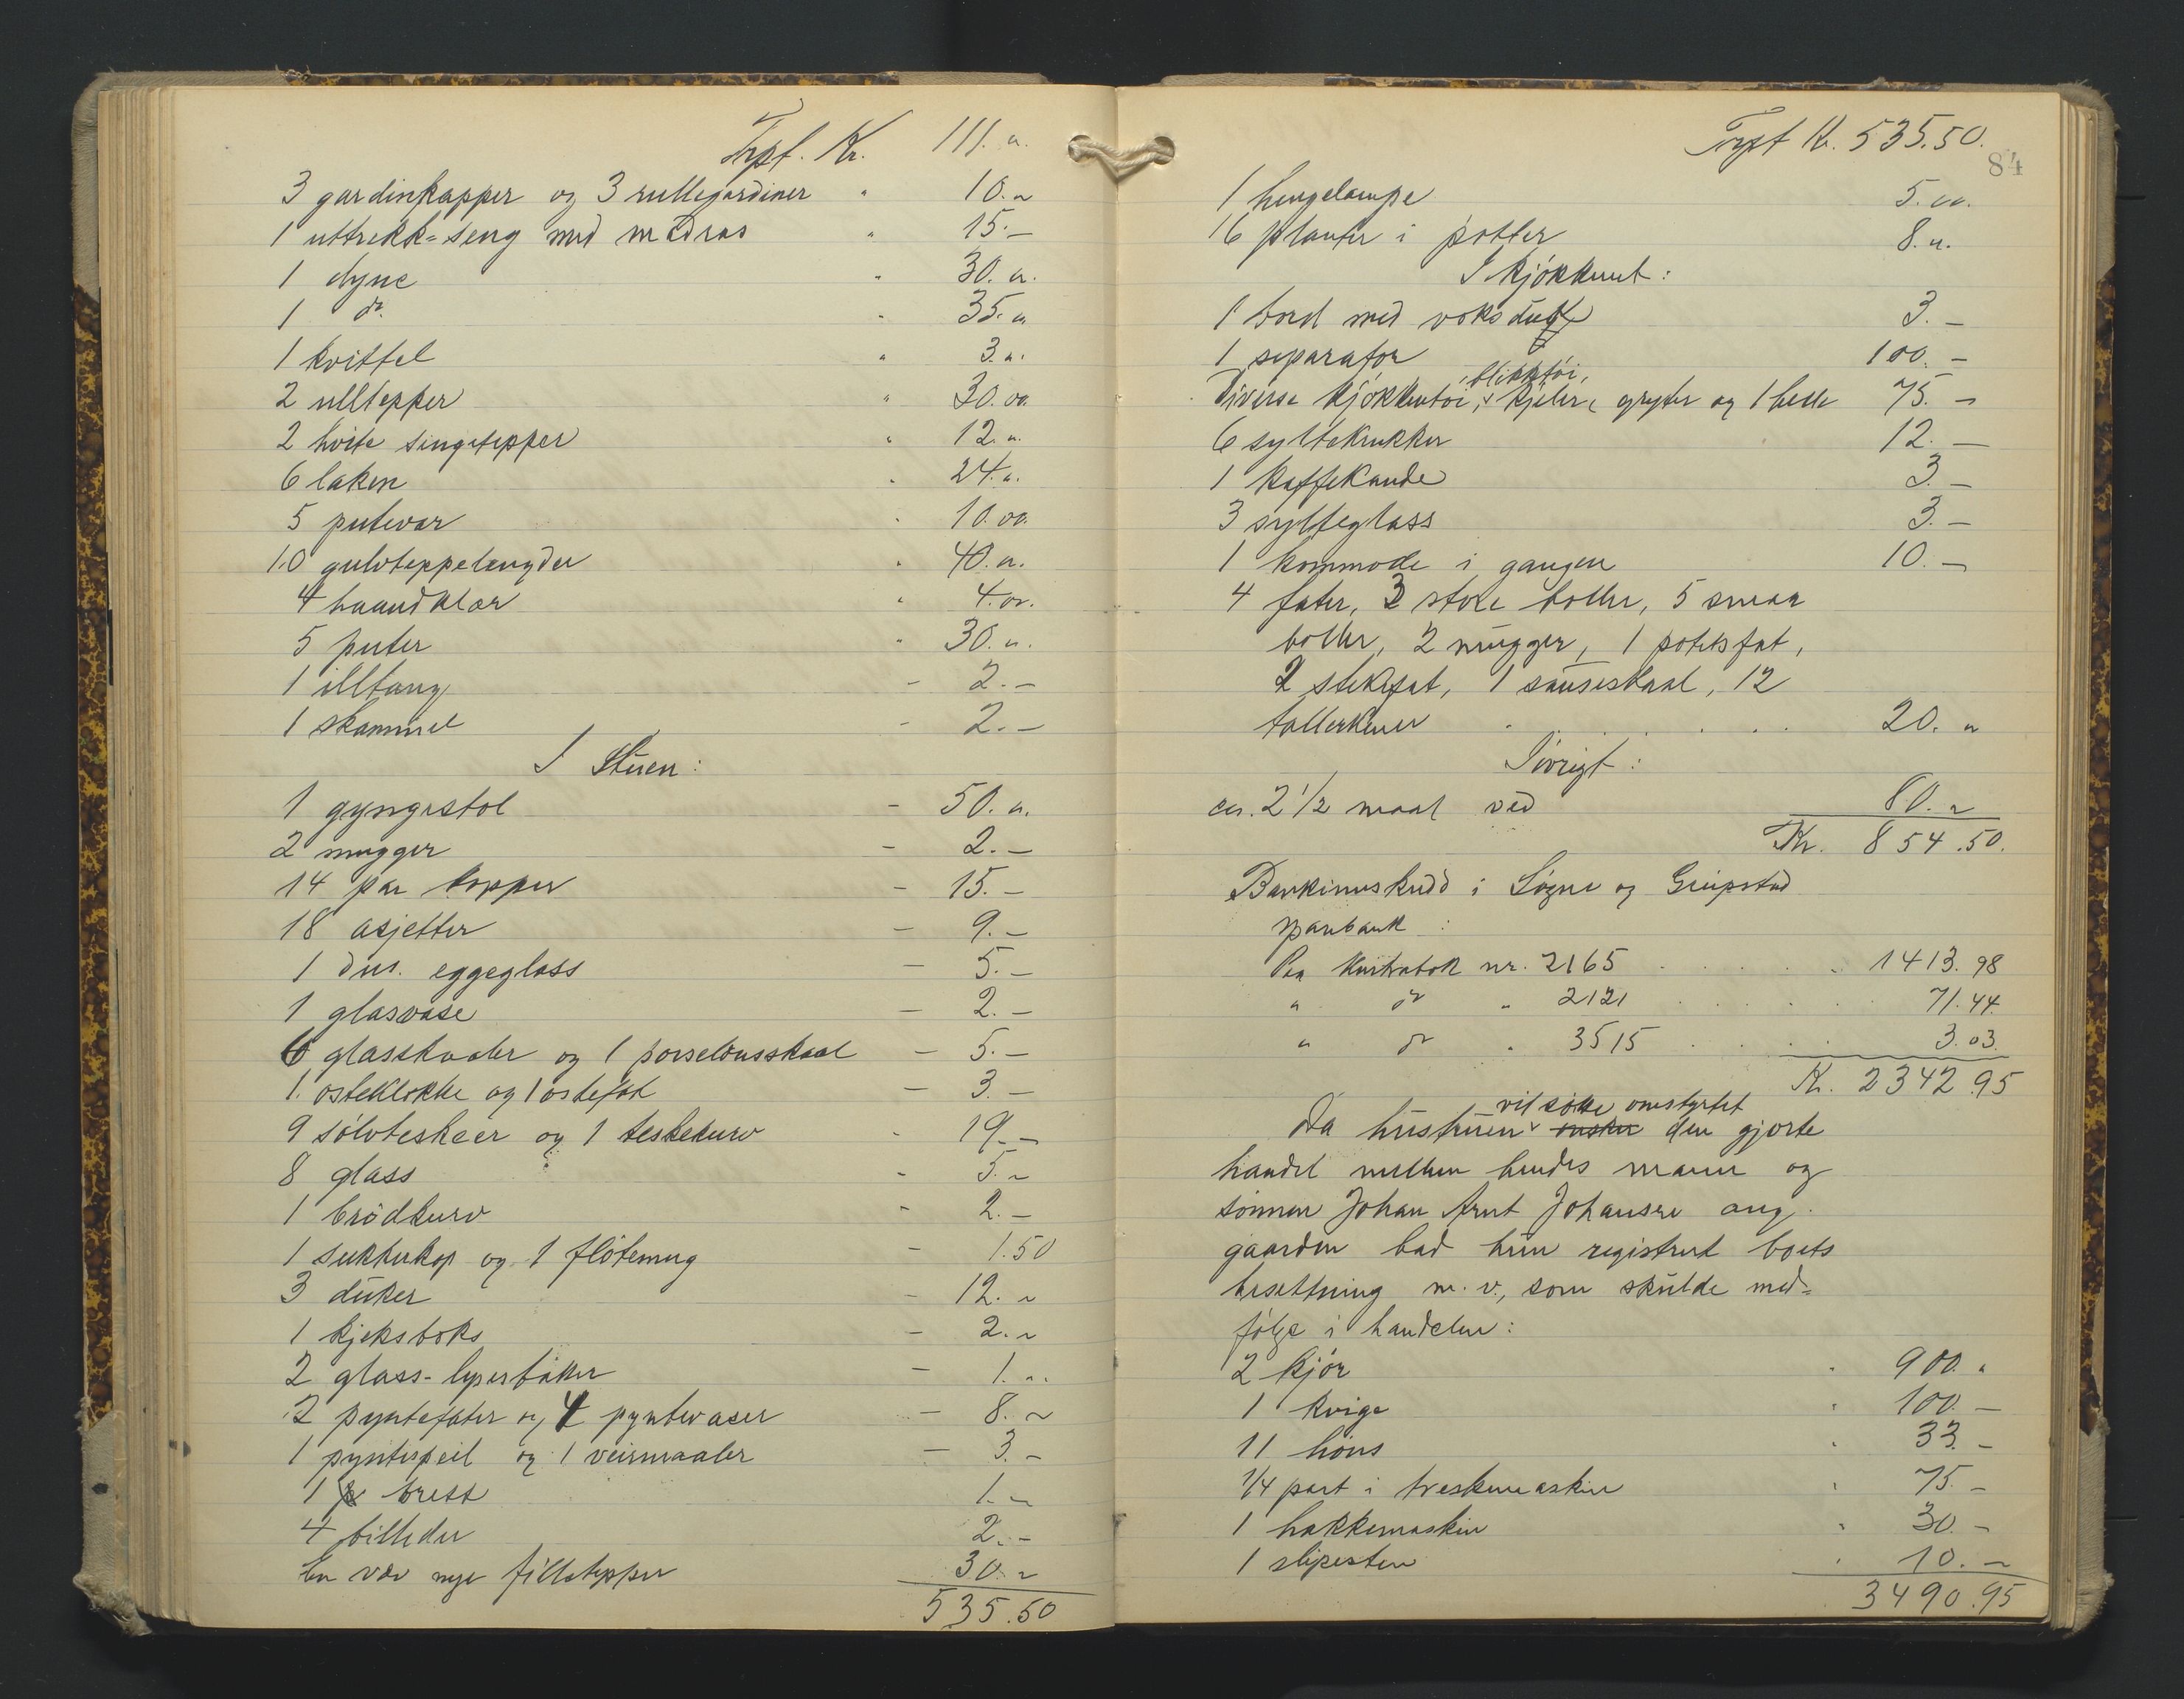 Trpt. Kr. 111. "
3 gardinkapper og 3 rullegardiner " 10. "
1 uttrekk=seng med madras " 15. –
1 dyne " 30. "
1 do. " 35. "
1 kvittel " 3. "
2 ulltepper " 30. 00
2 hvite sengetepper " 12. "
6 laken " 24. "
5 putevar " 10. 00
10 gulvteppelengder " 40. "
4 haandklær " 4. 00
5 puter " 30. "
1 illtang – 2. –
1 skammel – 2. –
I Stuen:
1 gyngestol – 50. "
2 mugger – 2. –
14 par kopper – 15. –
18 asjetter – 9. –
1 dus. eggeglass – 5. –
1 glasvase – 2. –
6 glasskaaler og 1 porselensskaal – 5. –
1 osteklokke og 1 ostefat – 3. –
9 sølvteskeer og 1 teskekurv - 19. –
8 glass - 5. "
1 brödkurv - 2. –
1 sukkerkop og 1 flötemug – 1.50
3 duker – 12. "
1 kjeksboks – 2. "
2 glass-lysestaker – 1. "
2 pyntefater og 4 pyntevaser – 8. "
1 pyntespeil og 1 veirmaaler – 3. –
1 brett 1. "
4 billeder 2. –
En vev nye filletepper 30. "
535.50
Trpt Kr. 535.50.
84
1 hengelampe 5. 00.
16 planter i potter 8. "
I kjökkenet:
1 bord med voksduk 3. –
1 separator 100. –
blikktöi,
Diverse kjökkentöi, kjeler, gryter og 1 bette 75. –
6 syltekrukker 12. –
1 kaffekande 3. –
3 sylteglass 3. –
1 kommode i gangen 10. –
4 fater, 3 store boller, 5 smaa
boller, 2 mugger, 1 potetsfat,
2 stekefat, 1 sauseskaal, 12
tallerkener . . . . . 20. "
Iövrigt:
ca. 2 1/2 maal ved 80. "
Kr. 854.50.
Bankinnskudd i Søgne og Greipstad
sparebank :
Paa kontrabok nr. 2165 . . . . . 1413. 98
" do " 2121 . . . . . 71.44.
" do " 3515 . . . . 3.03.
Kr. 2342.95
vil söke omstyrtet
Da hustruen ønsker den gjorte
handel mellem hendes mann og
sönnen Johan Arnt Johansen ang.
gaarden bad hun registrert boets
besettning m. v., som skulde med=
fölge i handelen:
2 kjör " 900. "
1 kvige " 100. –
11 höns " 33. –
1/4 part i treskemaskin " 75. –
1 hakkemaskin " 30. –
1 slipesten " 10. –
3490.95